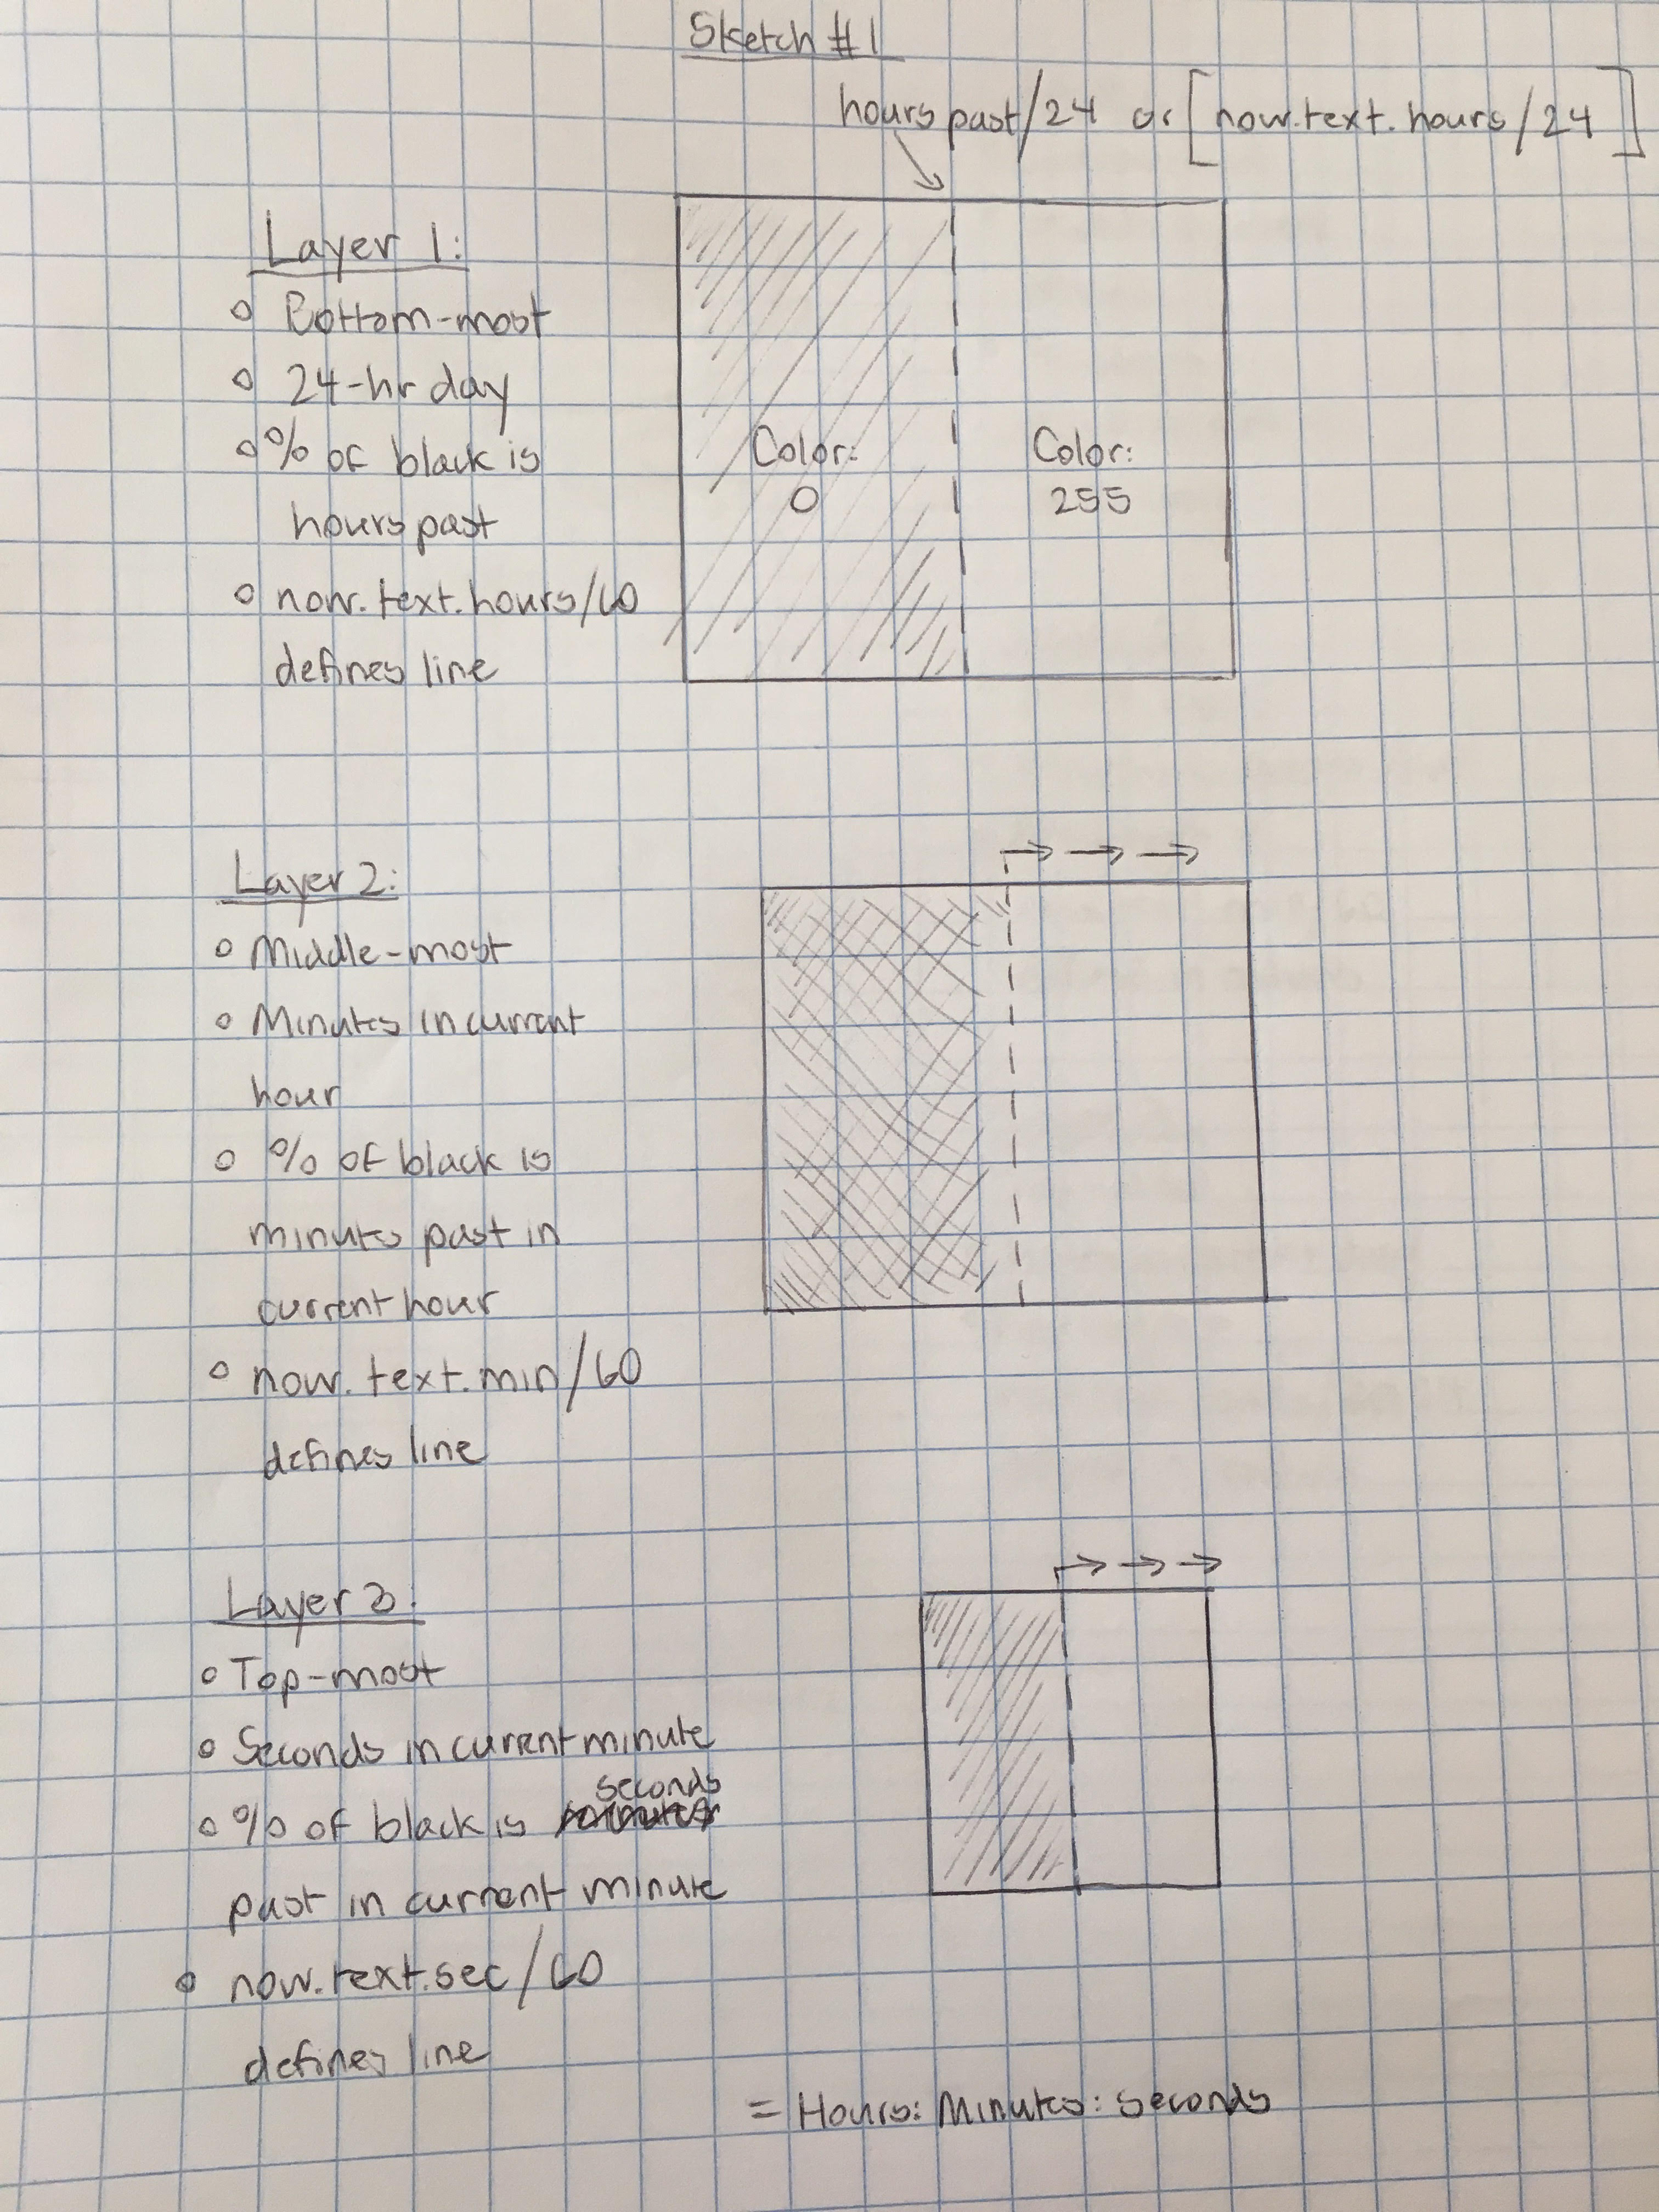 Sketch #1
hours past/24 or [now.text.hours/24]
Layer 1:
Bottom-most
24-hr day
% of black is
hours past
now.text.hours/60
defines line
Color:
0
Color:
255
Layer 2:
Middle-most
Minutes in current
hour
% of black is
minutes past in
current hour
now.text.min/60
defines line
Layer 3:
Top-most
Seconds in current minute
seconds
% of black is minutes
past in current minute
now.text.sec/60
defines line
= Hours: Minutes: seconds